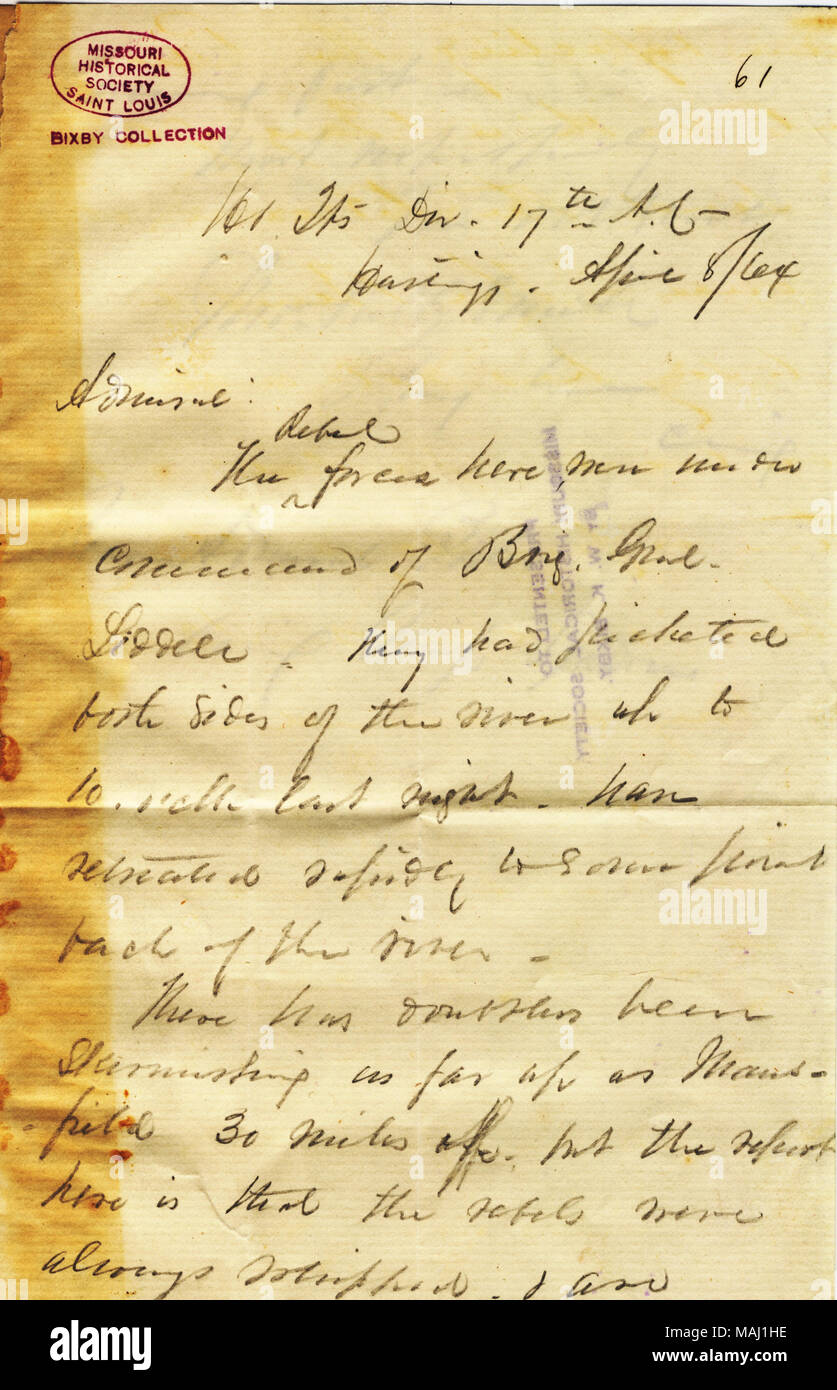 MISSOURI
HISTORICAL
SOCIETY
SAINT LOUIS
BIXBY COLLECTION
61
Div. 17th A. C.
April 8/64
Admiral:
Rebel
The forces here, were under
command of Brig. Genl.
Liddell. They had picketed
both sides of the river up to
last night. have
retreated rapidly to some point
back of the river.
There has doubtless been
skirmishing as far up as Mans-
-field 30 miles off. but the report
here is that the rebels were
always whipped. & are
PRESENTED TO
MISSOURI HISTORICAL SOCIETY
BY W. K. BIXBY
alamy
Image ID: MAJ1HE
www.alamy.com